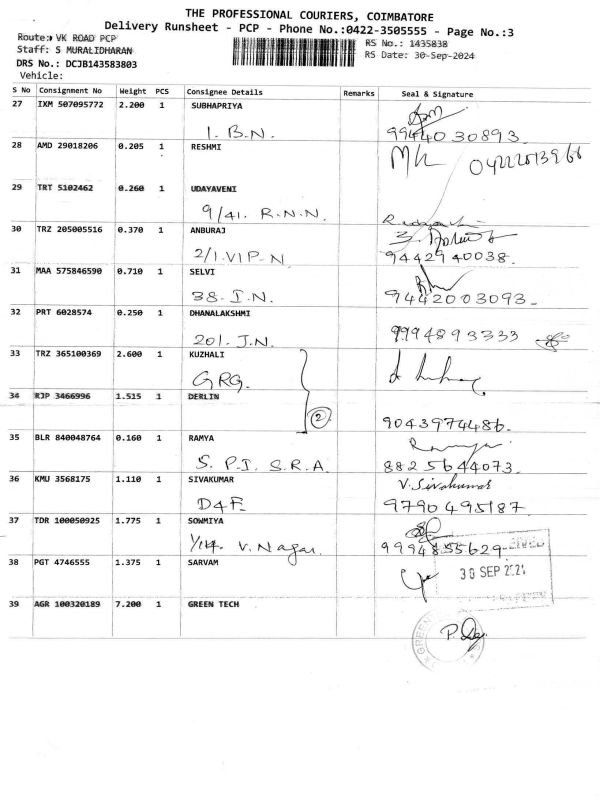 THE PROFESSIONAL COURIERS, COIMBATORE
Delivery Runsheet - PCP - Phone No.:0422-3505555 - Page No.:3
Route: VK ROAD PCP
RS No.: 1435838
Staff: S MURALIDHARAN
RS Date: 30-Sep-2024
DRS No.: DCJB143583803
Vehicle:
S No Consignment No Weight PCS Consignee Details Remarks Seal & Signature
27 IXM 507095772 2.200 1 SUBHAPRIYA
1. B.N. 9944030893.
28 AMD 29018206 0.205 1 RESHMI
29 TRT 5102462 0.260 1 UDAYAVENI
9/41. R.N.N.
30 TRZ 205005516 0.370 1 ANBURAJ
2/1.VIP-N 9442940038.
31 MAA 575846590 0.710 1 SELVI
38- I.N. 9442003093.
32 PRT 6028574 0.250 1 DHANALAKSHMI
201. J.N. 9994893333
33 TRZ 365100369 2.600 1 KUZHALI
GRG.
34 RJP 3466996 1.515 1 DERLIN
2
9043974486.
35 BLR 840048764 0.160 1 RAMYA
Ramya
S. P.I. S.R.A. 8825644073.
36 KMU 3568175 1.110 1 SIVAKUMAR V. Sivakumar
D4F. 9790495187
37 TDR 100050925 1.775 1 SOWMIYA
V. Nagar. 9994855629-
38 PGT 4746555 1.375 1 SARVAM
30 SEP
39 AGR 100320189 7.200 1 GREEN TECH
GREEN